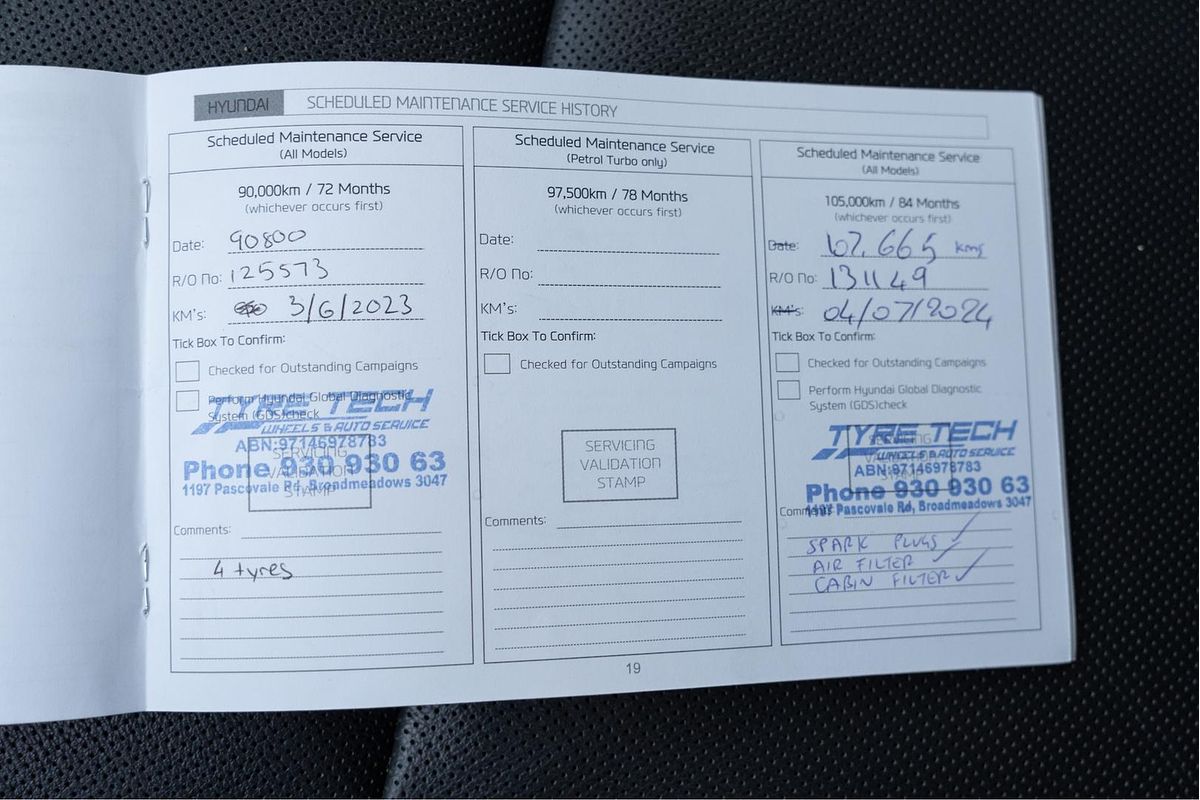 HYUNDAI SCHEDULED MAINTENANCE SERVICE HISTORY
Scheduled Maintenance Service
(All Models)
90,000km / 72 Months
(whichever occurs first)
Date: 90800
R/O No: 125573
KM's: 3/6/2023
Tick Box To Confirm:
Checked for Outstanding Campaigns
Perform Hyundai Global Diagnostic
System (GDS)check
TYRE TECH
WHEELS & AUTO SERVICE
ABN:97146978783
SERVICING
VALIDATION
STAMP
Phone 930 930 63
1197 Pascovale Rd, Broadmeadows 3047
Comments:
4 tyres
Scheduled Maintenance Service
(Petrol Turbo only)
97,500km / 78 Months
(whichever occurs first)
Date:
R/O No:
KM's:
Tick Box To Confirm:
Checked for Outstanding Campaigns
SERVICING
VALIDATION
STAMP
Comments:
Scheduled Maintenance Service
(All Models)
105,000km / 84 Months
(whichever occurs first)
Date: kms
R/O No: 131149
KM's: 04/07/2024
Tick Box To Confirm:
Checked for Outstanding Campaigns
Perform Hyundai Global Diagnostic
System (GDS)check
TYRE TECH
WHEELS & AUTO SERVICE
ABN:97146978783
SERVICING
VALIDATION
STAMP
Phone 930 930 63
1197 Pascovale Rd, Broadmeadows 3047
Comments
SPARK PLUGS ✓
AIR FILTER ✓
CABIN FILTER ✓
19